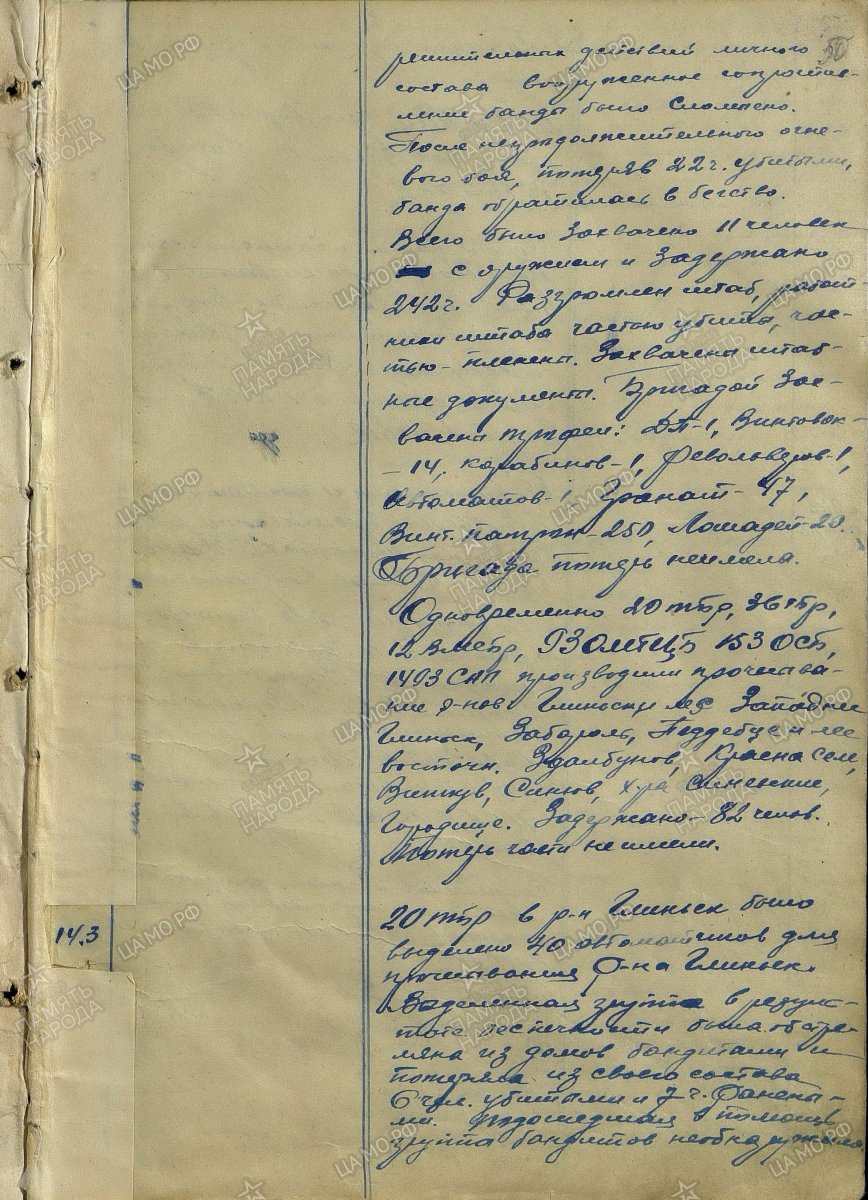 50
решительных действий личного
состава вооруженное сопротив-
ление банды было сломлено.
После непродолжительного огне-
вого боя, потеряв 22 ч. убитыми,
банда обратилась в бегство.
Всего было захвачено 11 человек
с оружием и задержано
242 ч. Разгромлен штаб, работ-
ники штаба частью убиты, час-
тью - пленены. Захвачены штаб-
ные документы. Бригадой зах-
вачены трофеи: ДП-1, Винтовок-
- 14, карабинов-1, Револьверов-1,
Автоматов-1 Гранат- 47,
Винт. патрон-250, Лошадей-20.
Бригада потерь неимела.
Одновременно 20 тбр,
производили прочесыва-
ние р-нов лес Западнее
Глинск, Забароль, и лес
восточн. Здолбунов, Красна Селе,
Виткув, х-ра
Городище. Задержано- 82 челов.
Потерь части не имели.
14.3
20 тбр в р-н Глиньск было
выделено 40 автоматчиков для
прочесывания р-на Глиньск.
Выделенная группа в резуль-
тате беспечности была обстре-
ляна из домов бандитами и
потеряла из своего состава
6 чел. убитыми и 7 ч. Ранены-
ми. Подошедшая в помощь
группа бандитов необнаружила